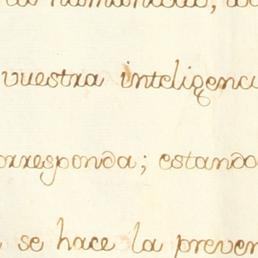 la humanidad,
vuestra inteligenci
orresponda; estando
se hace la preven